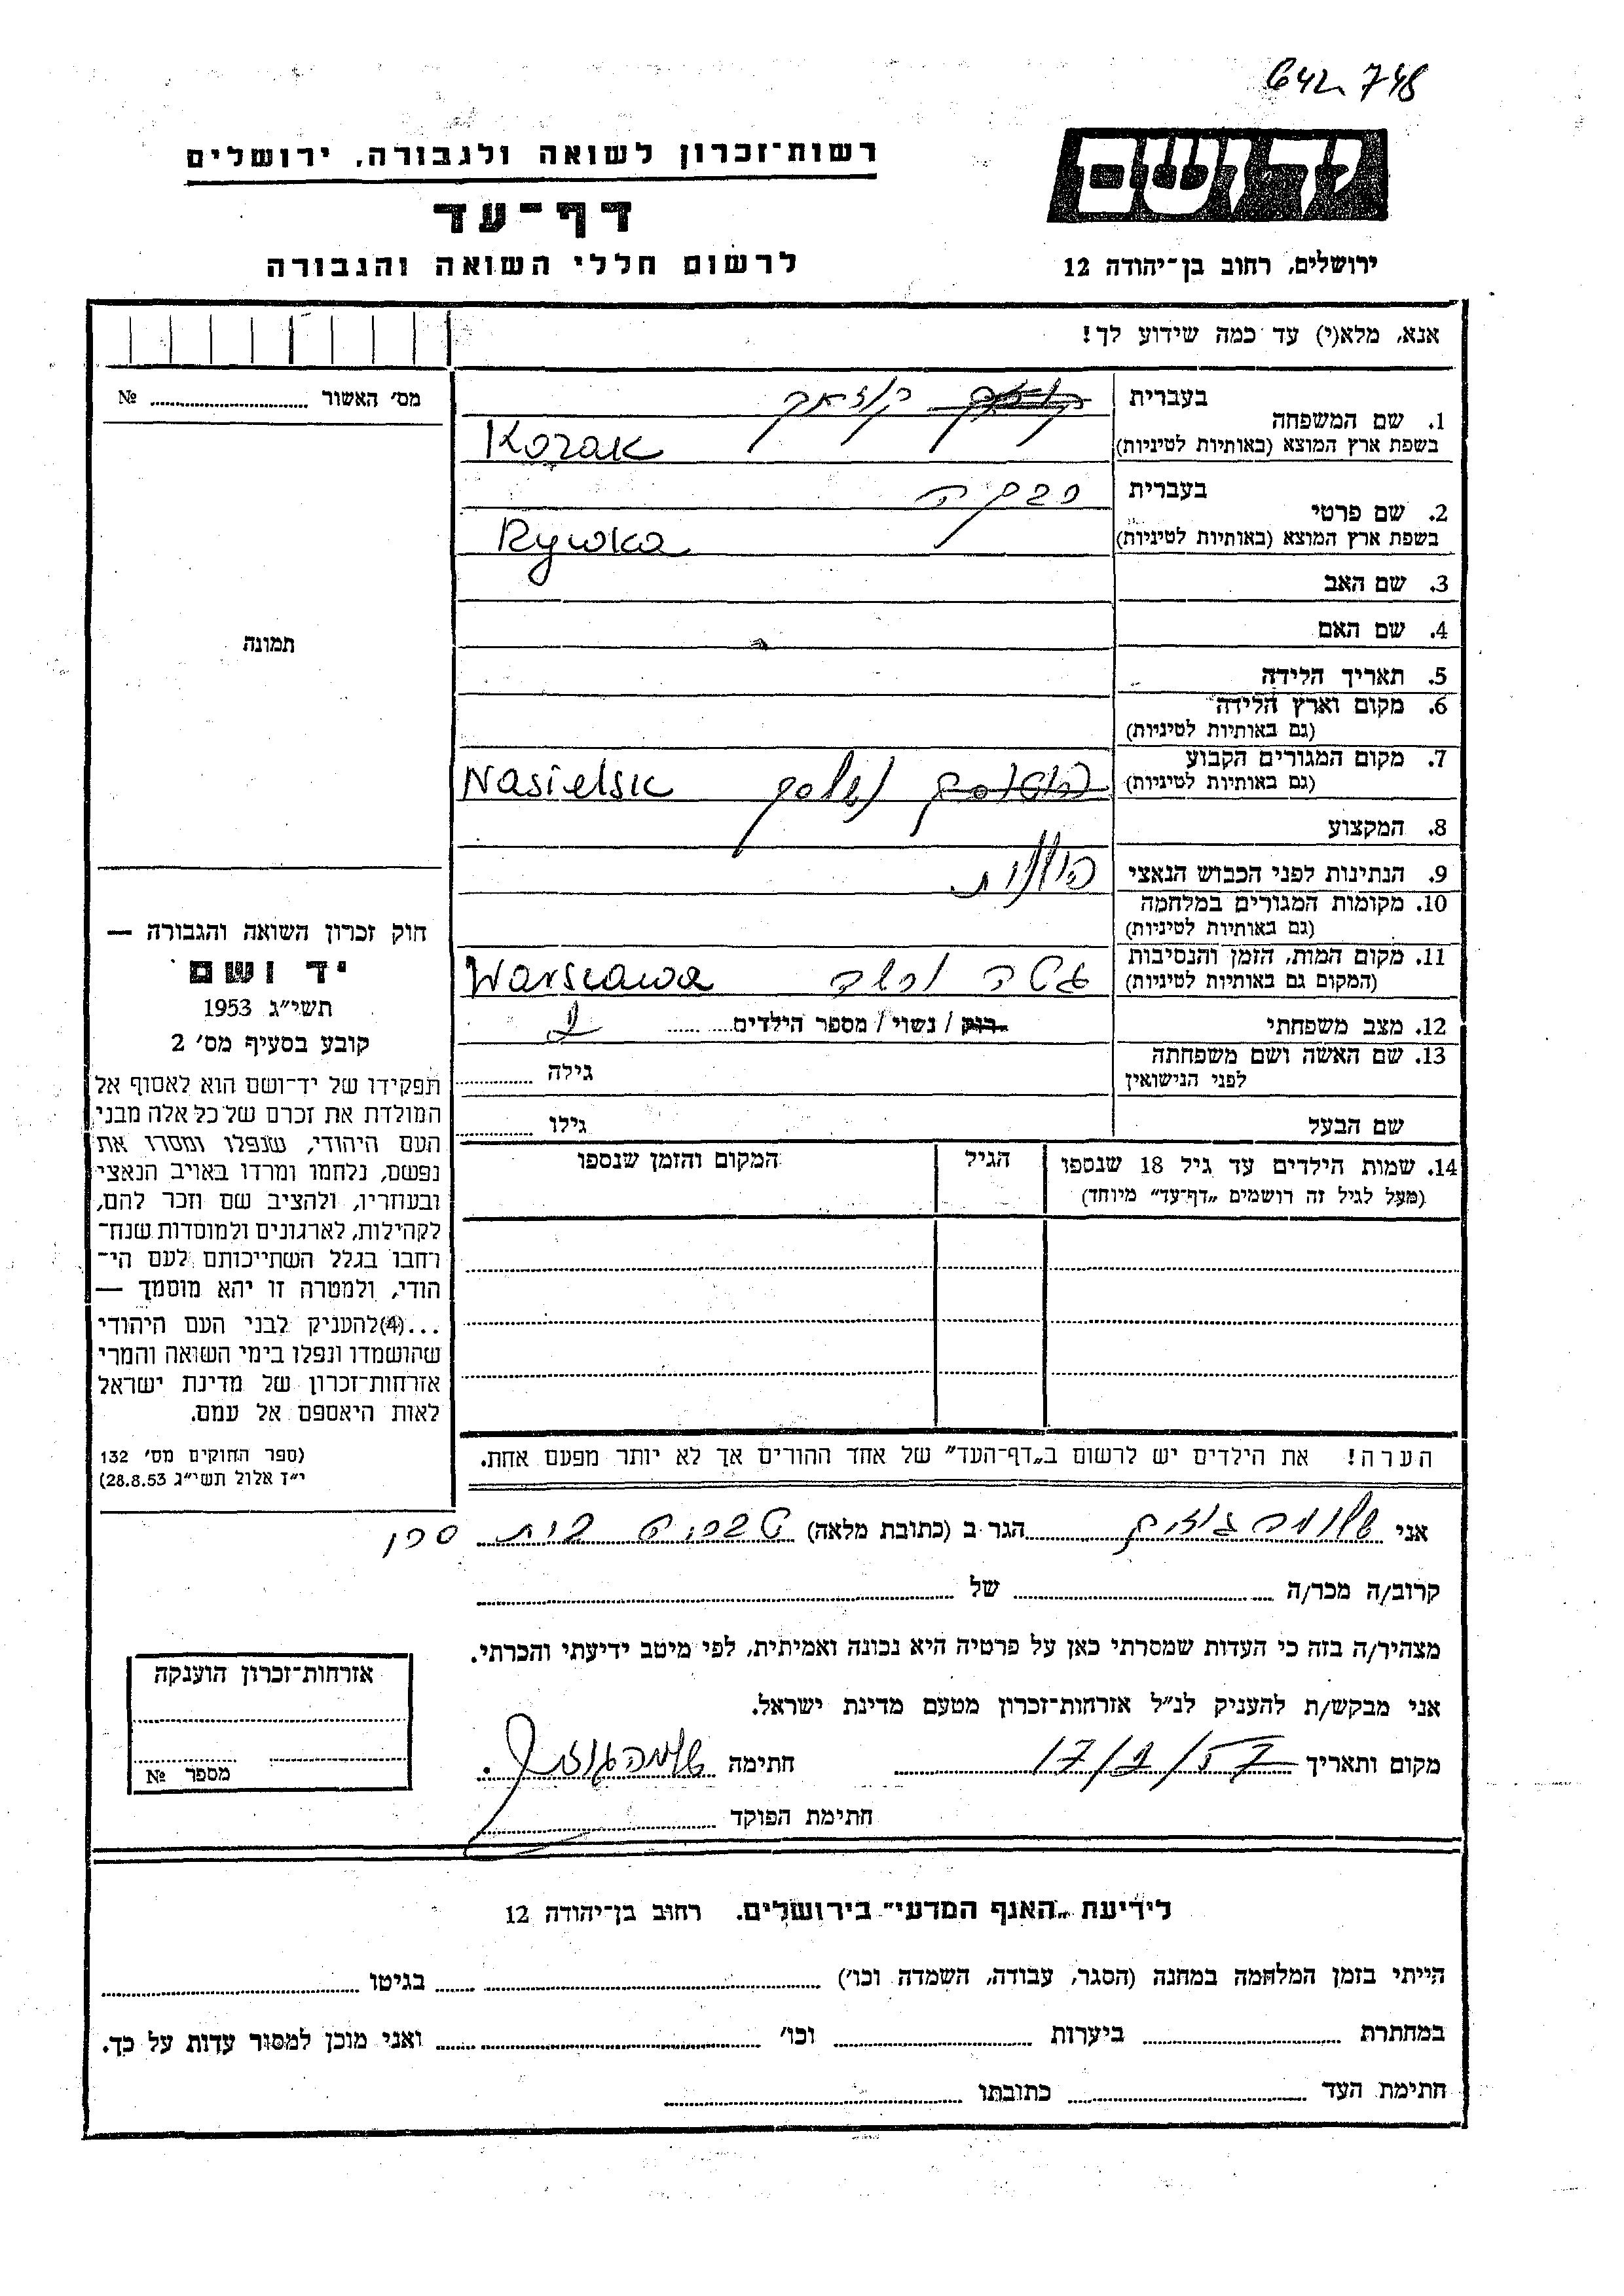 642748
יד ושם
רשות־זכרון לשואה ולגבורה, ירושלים
דף־עד
לרשום חללי השואה והגבורה
ירושלים, רחוב בן־יהודה 12
אנא, מלא(י) עד כמה שידוע לך!
מס׳ האשור № ........
1. שם המשפחה
בעברית קוזאק
בשפת ארץ המוצא (באותיות לטיניות) Kozak
2. שם פרטי
בעברית רבקה
בשפת ארץ המוצא (באותיות לטיניות) Rywka
3. שם האב
4. שם האם
תמונה
5. תאריך הלידה
6. מקום וארץ הלידה
(גם באותיות לטיניות)
7. מקום המגורים הקבוע
(גם באותיות לטיניות) Nasielsk
8. המקצוע
9. הנתינות לפני הכבוש הנאצי פולנית
10. מקומות המגורים במלחמה
(גם באותיות לטיניות)
11. מקום המות, הזמן והנסיבות
(המקום גם באותיות לטיניות) גטו ורשה Warszawa
12. מצב משפחתי רוק / נשוי / מספר הילדים........ 2
13. שם האשה ושם משפחתה
לפני הנישואין גילה ........
שם הבעל גילו ........
14. שמות הילדים עד גיל 18 שנספו הגיל המקום והזמן שנספו
(מעל לגיל זה רושמים „דף־עד״ מיוחד)
חוק זכרון השואה והגבורה —
יד ושם
תשי״ג 1953
קובע בסעיף מס׳ 2
תפקידו של יד־ושם הוא לאסוף אל
המולדת את זכרם של כל אלה מבני
העם היהודי, שנפלו ומסרו את
נפשם, נלחמו ומרדו באויב הנאצי
ובעוזריו, ולהציב שם וזכר להם,
לקהילות, לארגונים ולמוסדות שנח־
רחבו בגלל השתייכותם לעם הי־
הודי, ולמטרה זו יהא מוסמך —
...(4)להעניק לבני העם היהודי
שהושמדו ונפלו בימי השואה והמרי
אזרחות־זכרון של מדינת ישראל
לאות היאספם אל עמם.
(ספר החוקים מס׳ 132
י״ז אלול תשי״ג 28.8.53)
הערה! את הילדים יש לרשום ב„דף־העד״ של אחד ההורים אך לא יותר מפעם אחת.
אני שלומה הגר ב (כתובת מלאה)
קרוב/ה מכר/ה ........ של ........
מצהיר/ה בזה כי העדות שמסרתי כאן על פרטיה היא נכונה ואמיתית, לפי מיטב ידיעתי והכרתי.
אני מבקש/ת להעניק לנ״ל אזרחות־זכרון מטעם מדינת ישראל.
מקום ותאריך 17/2/57 חתימה
חתימת הפוקד ........
אזרחות־זכרון הוענקה
מספר №
לידיעת „האנף המדעי״ בירושלים. רחוב בן־יהודה 12
הייתי בזמן המלחמה במחנה (הסגר, עבודה, השמדה וכו׳) ........ בגיטו ........
במחתרת ........ ביערות ........ וכו׳ ........ ואני מוכן למסור עדות על כך.
חתימת העד ........ כתובתו ........